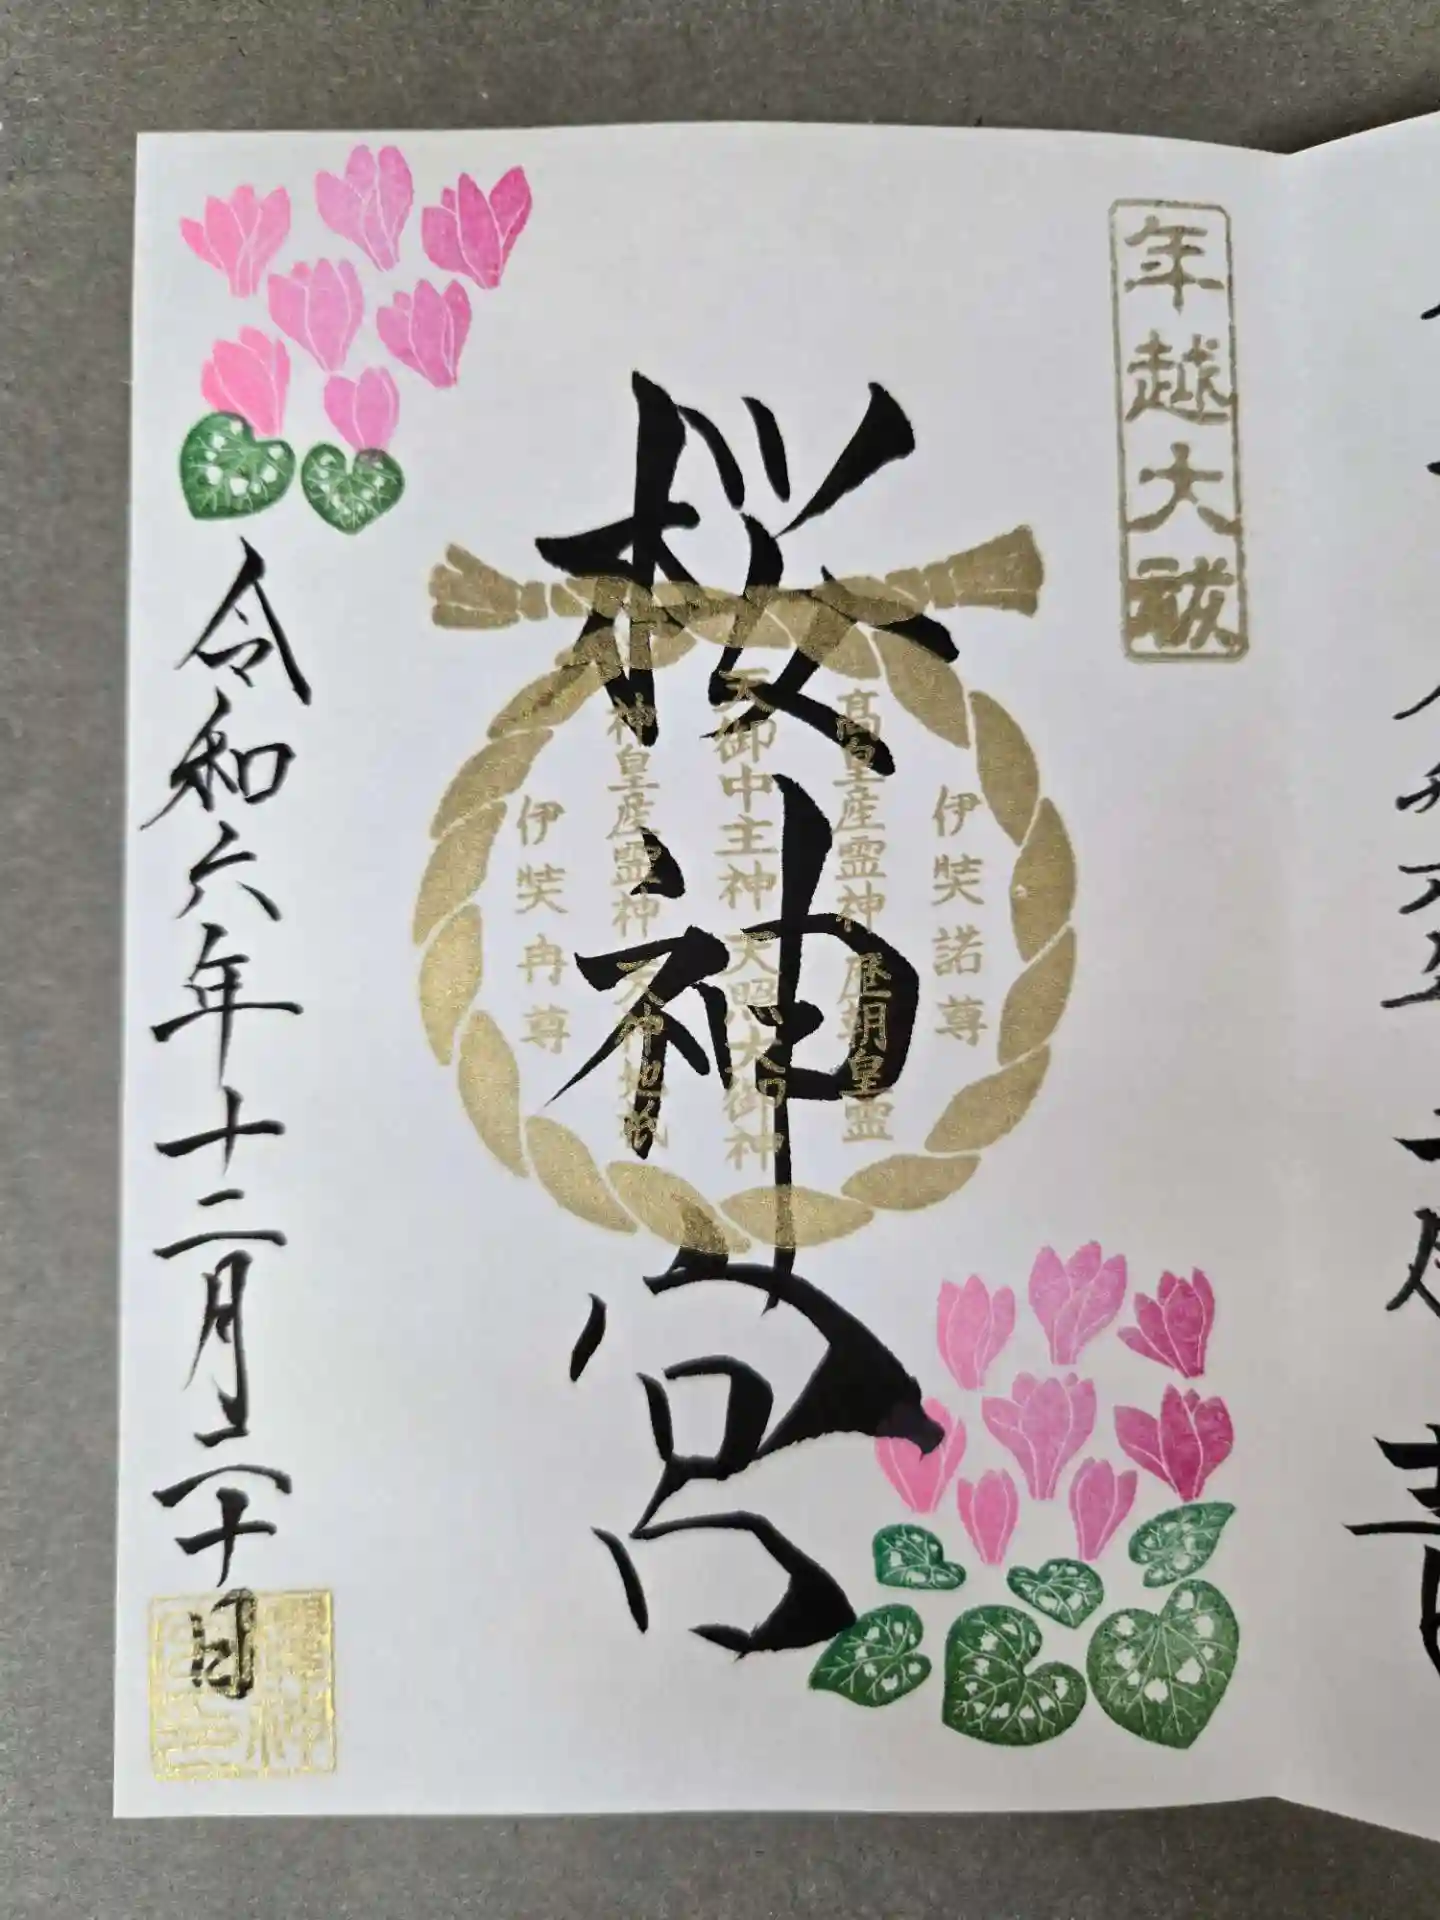 年越大祓
桜神宮
伊弉諾尊
高皇産霊神 歴朝皇霊
天御中主神 天照大御神
神皇産霊神 天神地祇
伊弉冉尊
令和六年十二月二十日